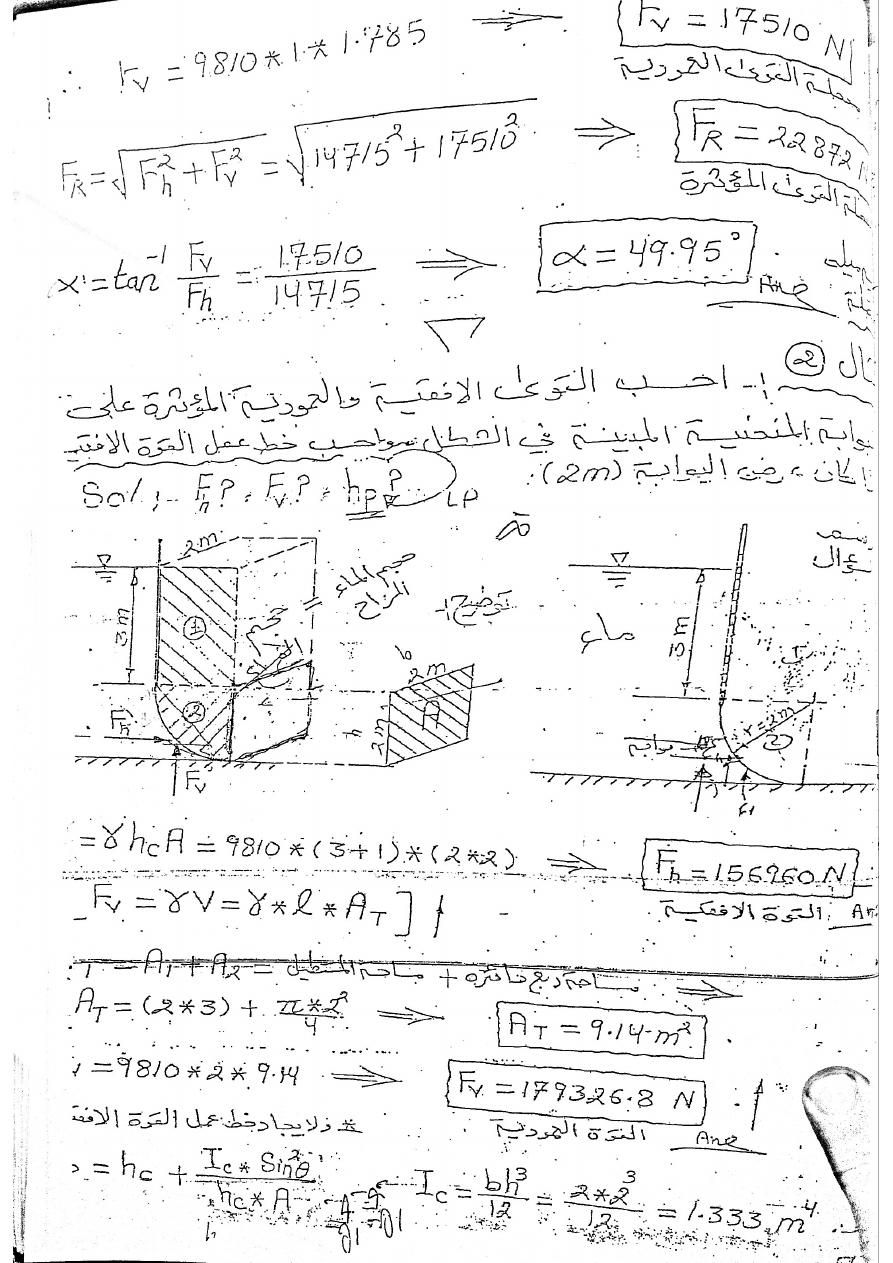 ∴ Fv = 9810 * 1 * 1.785 ⟹ Fv = 17510 N
محصلة القوى العمودية
FR = √Fh² + Fv² = √14715² + 17510² ⟹ FR = 22872 N
محصلة القوى المؤثرة
α = tan⁻¹ Fv/Fh = 17510/14715 ⟹ α = 49.95° Ans
ال (2) :- احسب القوى الافقية والعمودية المؤثرة على
بوابة المنحنية المبينة في الشكل واحسب خط عمل القوة الافقية
اكان عرض البوابة (2m).
Sol:- Fh? , Fv? , hp?
2m
3m
①
②
Fh
Fv
حجم الماء المزاح
حجم
توضيح:-
b
2m
h
2m
A
ماء
3m
r=2m
بوابة
= γ hc A = 9810 * (3+1) * (2*2) ⟹ Fh = 156960 N
القوة الافقية Ans
Fv = γV = γ * l * AT ] ↑
= A1 + A2 = مساحة المستطيل + مساحة ربع دائرة ⟹
AT = (2*3) + π*2²/4 ⟹ AT = 9.14 m²
= 9810 * 2 * 9.14 ⟹ Fv = 179326.8 N ↑
القوة العمودية Ans
* ولايجاد خط عمل القوة الافقية
= hc + Ic * Sin²θ / hc * A Ic = bh³/12 = 2*2³/12 = 1.333 m⁴